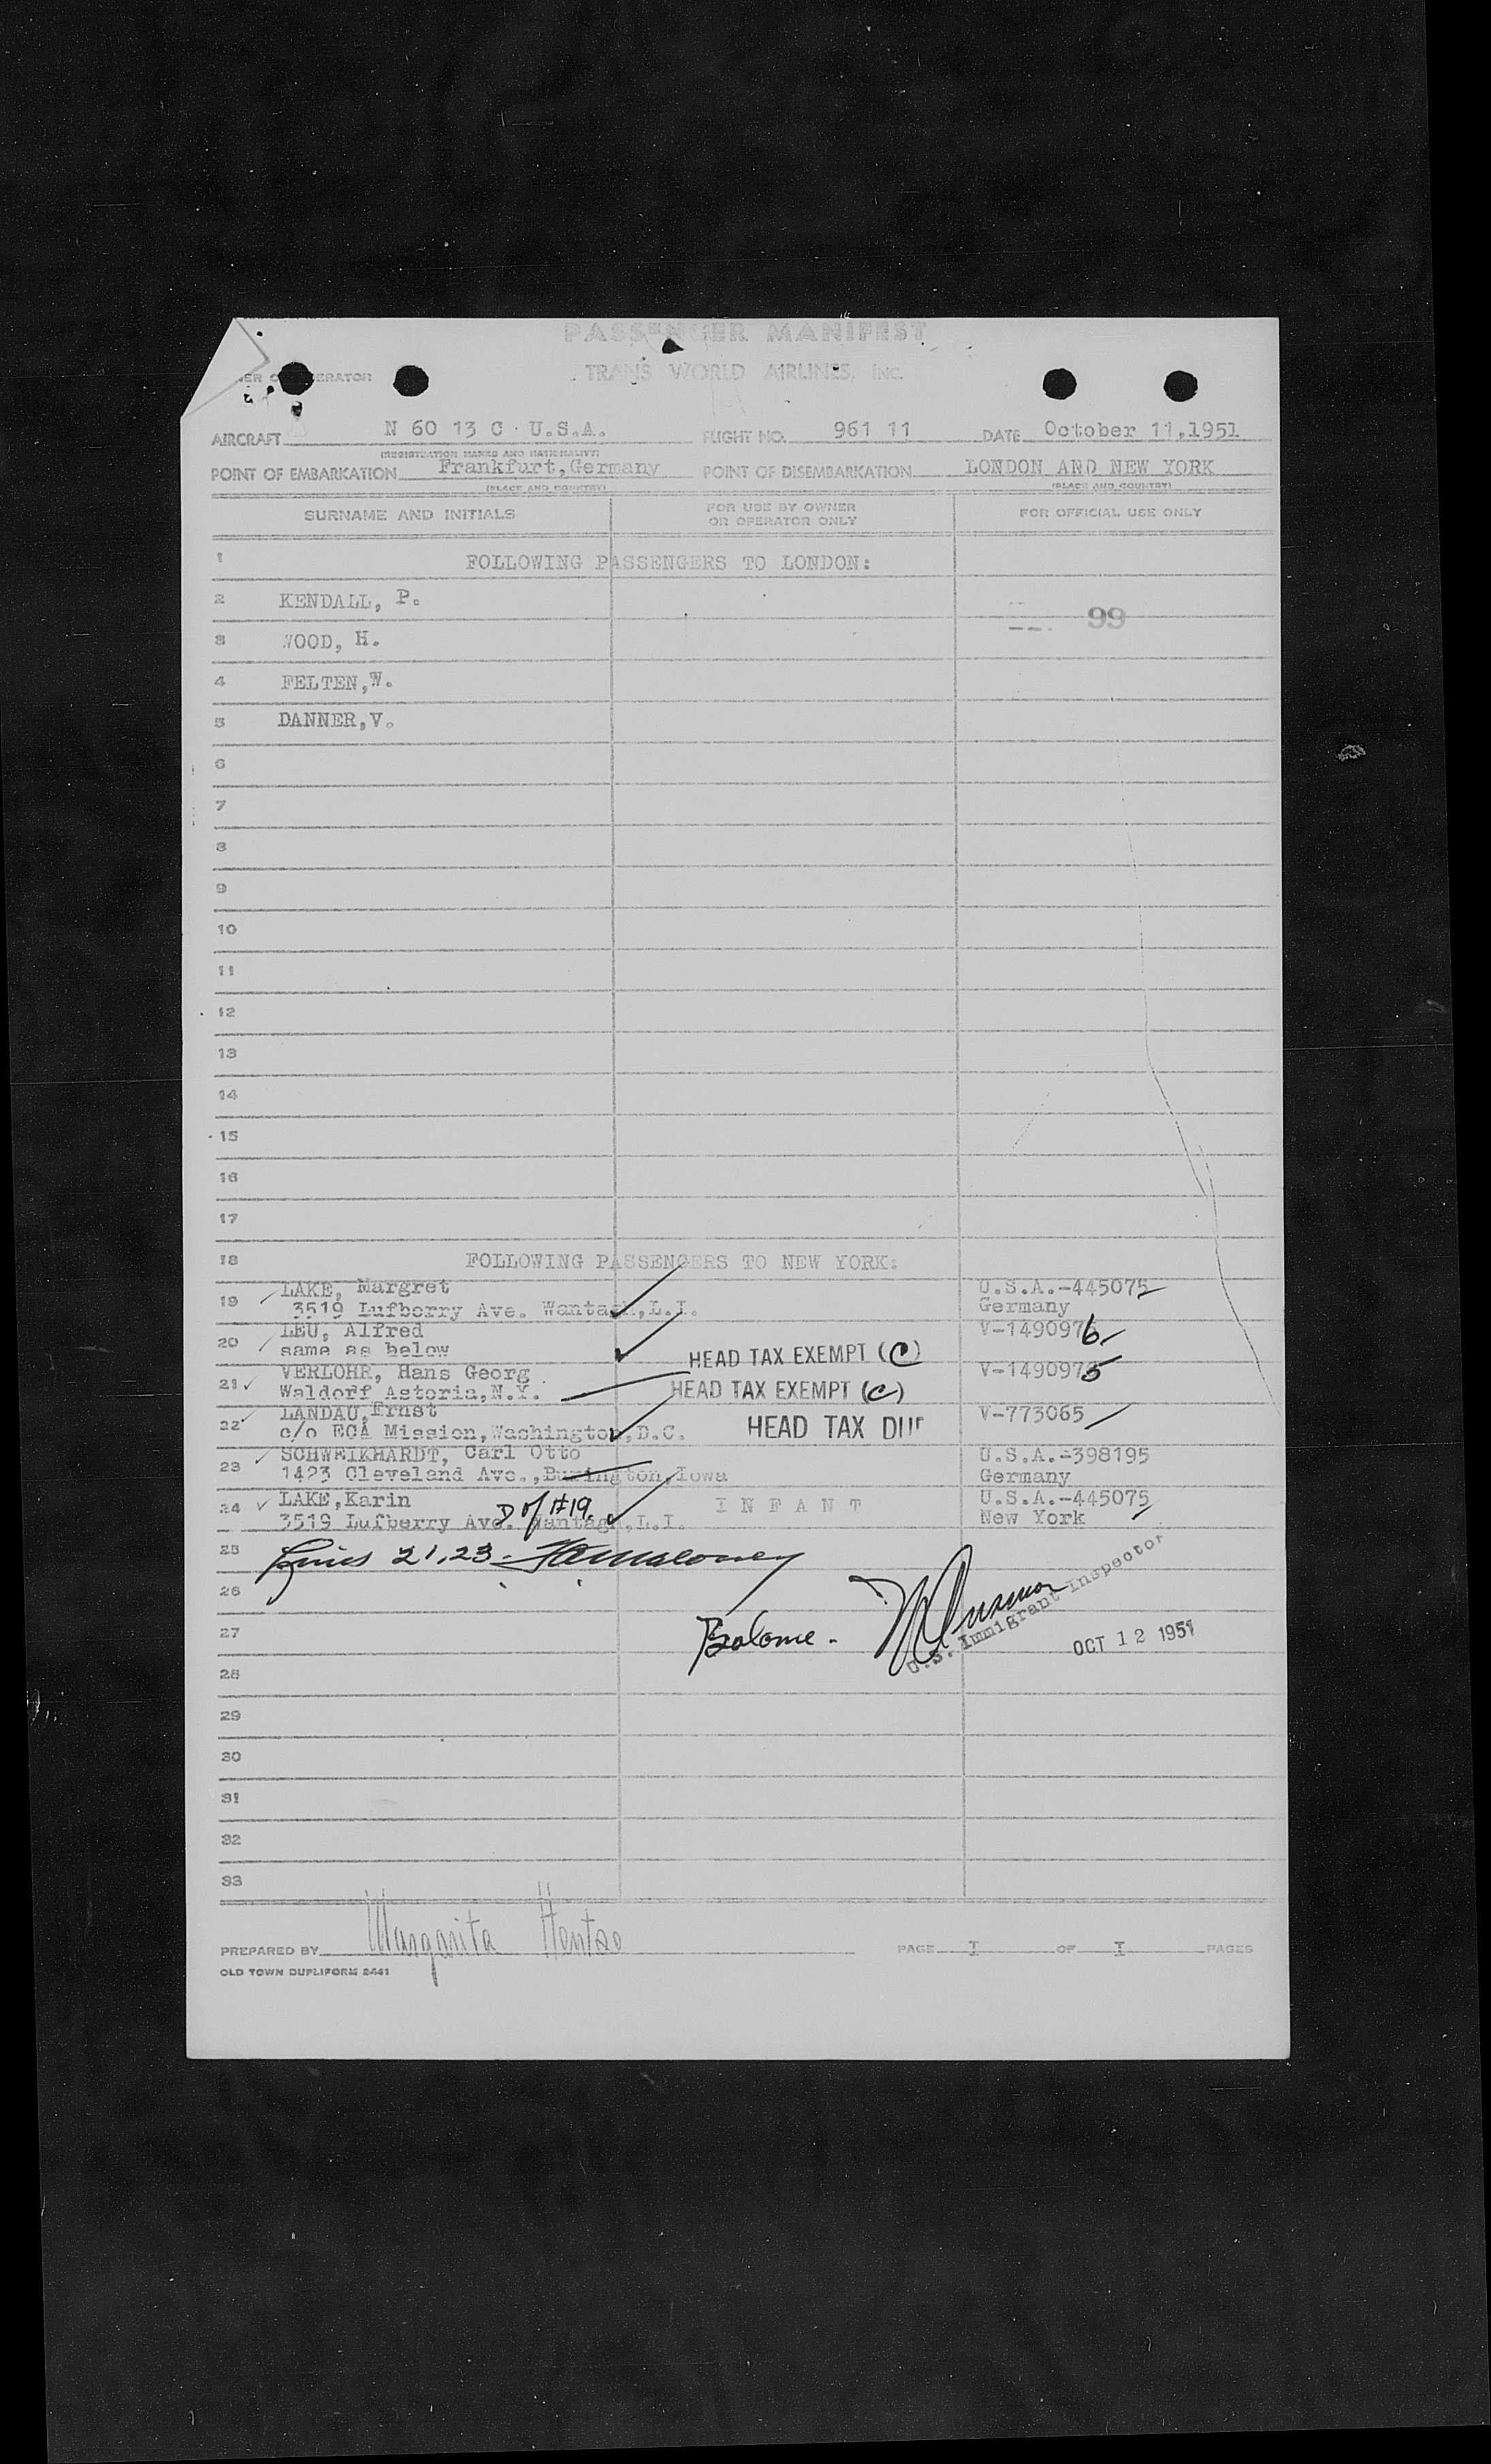 PASSENGER MANIFEST
TRANS WORLD AIRLINES, INC.
AIRCRAFT N 60 13 C U.S.A. FLIGHT NO. 961 11 DATE October 11,1951
(REGISTRATION MARKS AND NATIONALITY)
POINT OF EMBARKATION Frankfurt,Germany POINT OF DISEMBARKATION LONDON AND NEW YORK
(PLACE AND COUNTRY) (PLACE AND COUNTRY)
SURNAME AND INITIALS FOR USE BY OWNER OR OPERATOR ONLY FOR OFFICIAL USE ONLY
1 FOLLOWING PASSENGERS TO LONDON:
2 KENDALL, P.
99
3 WOOD, H.
4 FELTEN,W.
5 DANNER,V.
6
7
8
9
10
11
12
13
14
15
16
17
18 FOLLOWING PASSENGERS TO NEW YORK:
19 LAKE, Margret U.S.A.-445075
3519 Lufborry Ave. Wantagh,L.I. Germany
20 LEU, Alfred V-1490976
same as below HEAD TAX EXEMPT (C)
21 VERLOHR, Hans Georg V-1490975
Waldorf Astoria,N.Y. HEAD TAX EXEMPT (C)
22 LANDAU,Ernst V-773065
c/o ECA Mission,Washington,D.C. HEAD TAX DUE
23 SCHWEIKHARDT, Carl Otto U.S.A.-398195
1423 Cleveland Ave.,Burington,Iowa Germany
24 LAKE,Karin D of #19 INFANT U.S.A.-445075
3519 Lufberry Ave. Wantagh,L.I. New York
25 Lines 21,23
26
27 Balance - U.S. Immigrant Inspector OCT 12 1951
28
29
30
31
32
33
PREPARED BY Margarita PAGE I OF I PAGES
OLD TOWN DUPLIFORM 2441